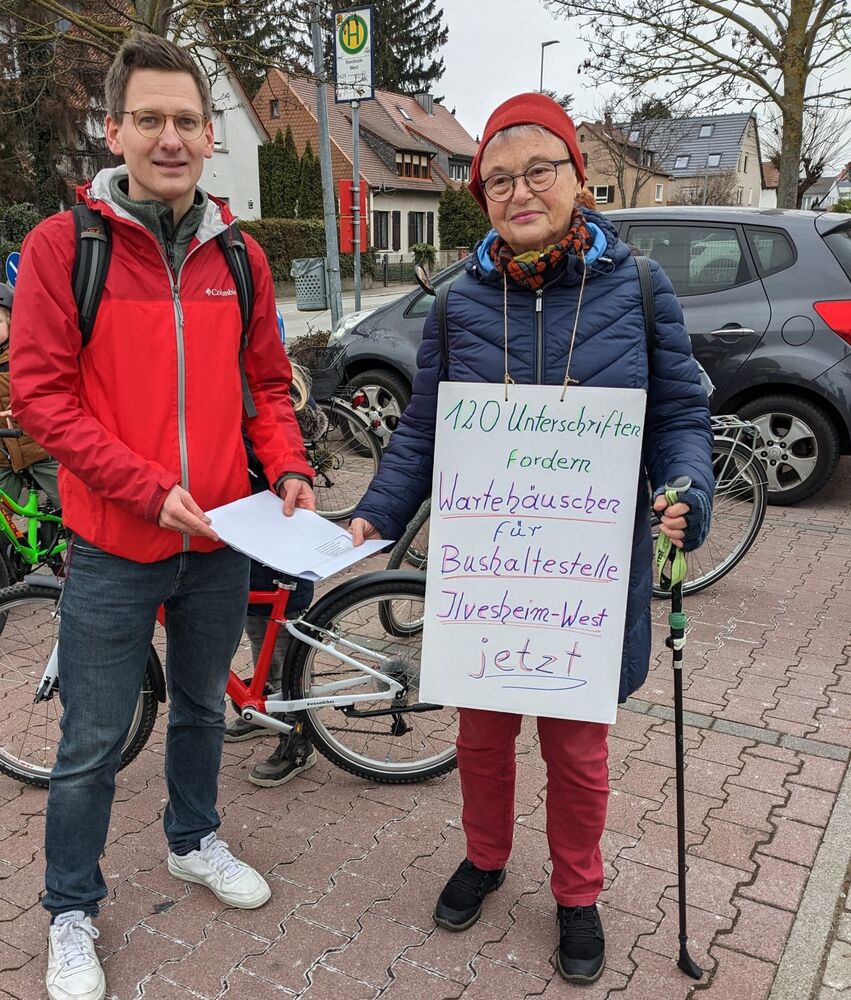 H
Ilvesheim
West
Columbia
120 Unterschriften
fordern
Wartehäuschen
für
Bushaltestelle
Ilvesheim-West
jetzt
#woombikes